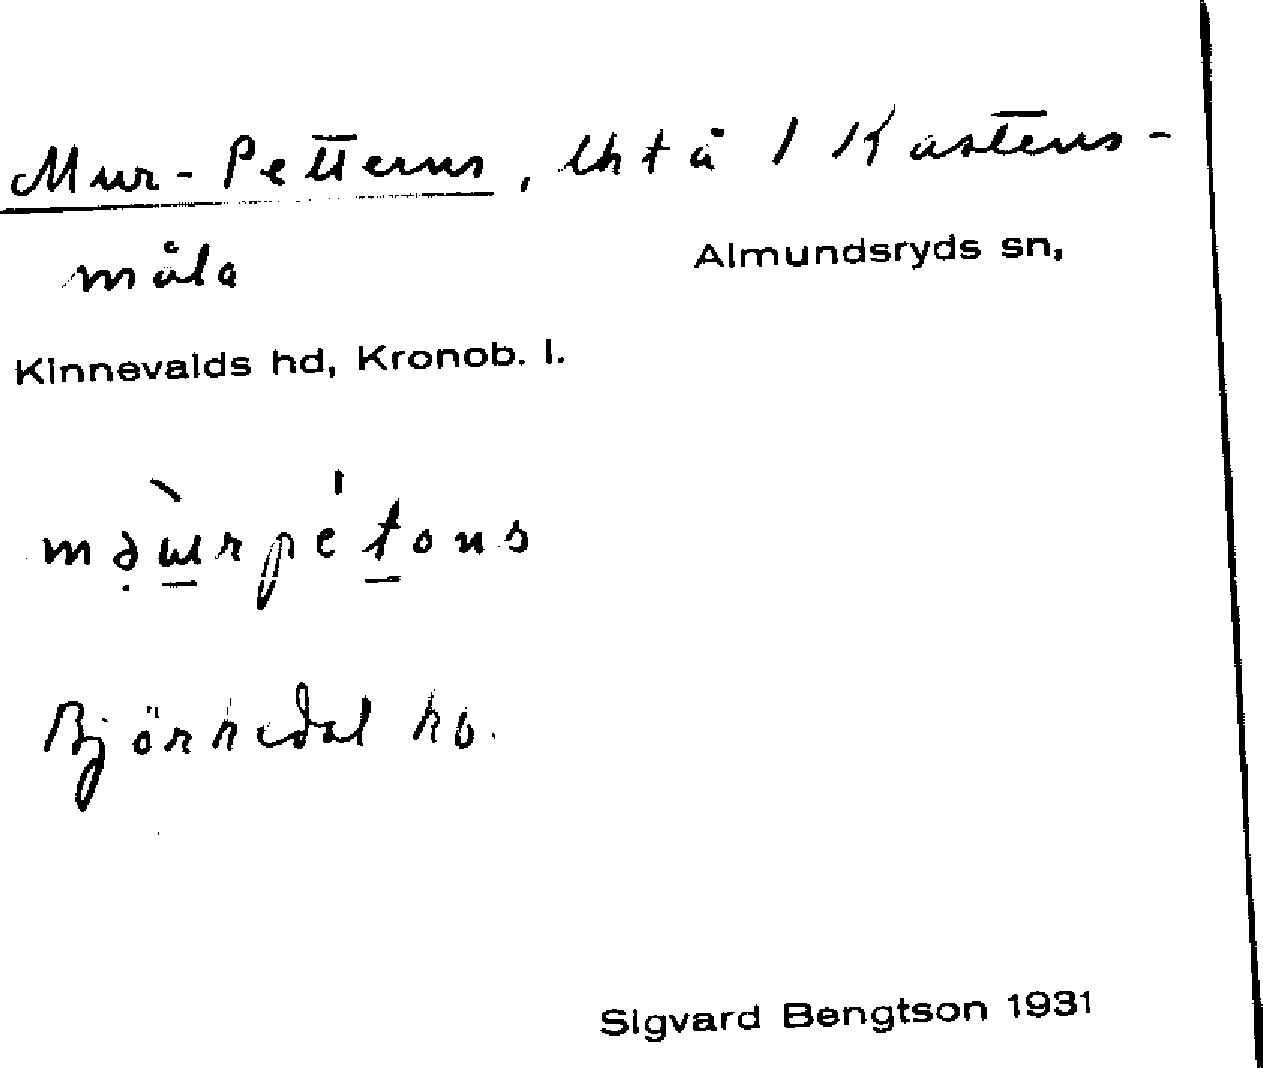 Mur-Petterns, lht å 1 Kastens-
måla
Almundsryds sn,
Kinnevalds hd, Kronob. l.
Björkedal
Sigvard Bengtson 1931